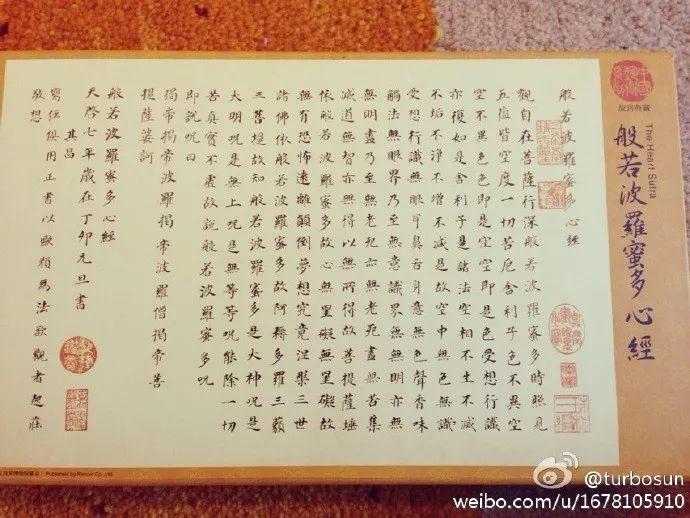 故宮典藏
般若波羅蜜多心經
The Heart Sutra
般若波羅蜜多心經
觀自在菩薩行深般若波羅蜜多時照見
五蘊皆空度一切苦厄舍利子色不異空
空不異色色即是空空即是色受想行識
亦復如是舍利子是諸法空相不生不滅
不垢不淨不增不減是故空中無色無識
受想行識無眼耳鼻舌身意無色聲香味
觸法無眼界乃至無意識界無無明亦無
無明盡乃至無老死亦無老死盡無苦集
滅道無智亦無得以無所得故菩提薩埵
依般若波羅蜜多故心無罣礙無罣礙故
無有恐怖遠離顛倒夢想究竟涅槃三世
諸佛依般若波羅蜜多故阿耨多羅三藐
三菩提故知般若波羅蜜多是大神呪是
大明呪是無上呪是無等等呪能除一切
苦真實不虛故說般若波羅蜜多呪
即說呪曰
揭帝揭帝波羅揭帝波羅僧揭帝菩
提薩婆訶
般若波羅蜜多心經
天啓七年歲在丁卯元旦書
其昌
寫經俱用正書以歐顏為法欲觀者起莊
敬想
Published by Rervoir Co., Ltd.
@turbosun
weibo.com/u/1678105910